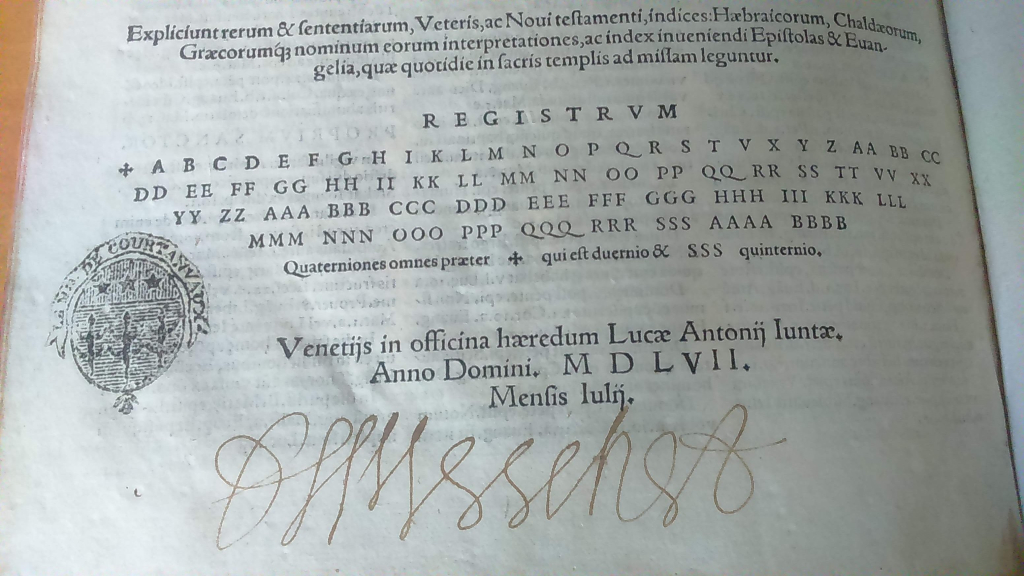 Expliciunt rerum & ſententiarum, Veteris, ac Noui teſtamenti, indices: Hæbraicorum, Chaldæorum,
Græcorumq́; nominum eorum interpretationes, ac index inueniendi Epiſtolas & Euan-
gelia, quæ quotidie in ſacris templis ad miſſam leguntur.
REGISTRVM
✠ A B C D E F G H I K L M N O P Q R S T V X Y Z AA BB CC
DD EE FF GG HH II KK LL MM NN OO PP QQ RR SS TT VV XX
YY ZZ AAA BBB CCC DDD EEE FFF GGG HHH III KKK LLL
MMM NNN OOO PPP QQQ RRR SSS AAAA BBBB
Quaterniones omnes præter ✠ qui eſt duernio & SSS quinternio.
DE COURTANVAUX
Venetijs in officina hæredum Lucæ Antonij Iuntæ.
Anno Domini. M D LVII.
Menſis Iulij.